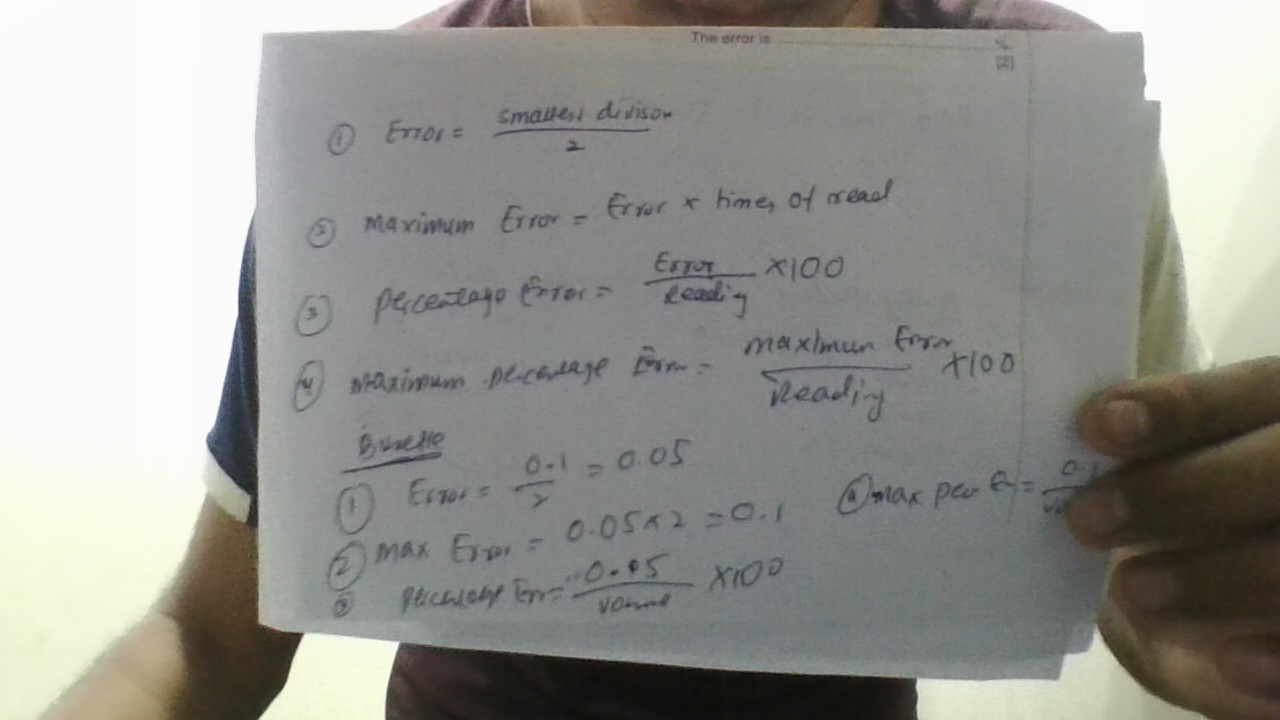 The error is .......... %
[2]
① Error = smallest divisor / 2
② Maximum Error = Error × times of read
③ Percentage Error = Error / Reading ×100
④ Maximum percentage Error = Maximum Error / Reading ×100
Burette
① Error = 0.1 / 2 = 0.05
② Max Error = 0.05×2 = 0.1
③ Percentage Err = 0.05 / volume ×100
④ max per Er = 0.1